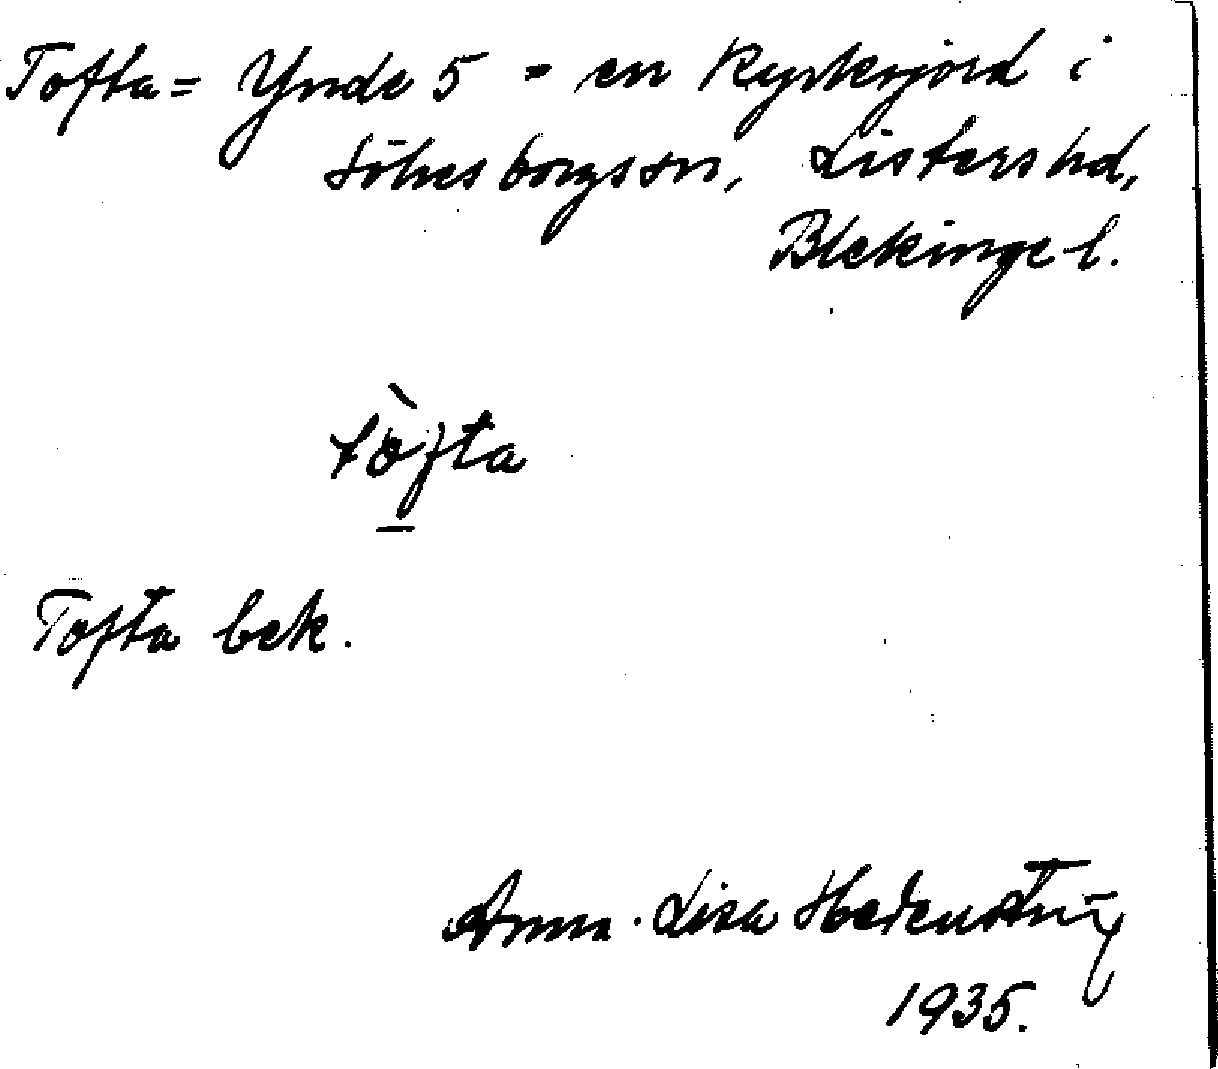 Tofta = Ynde 5 - en Kyrkojord i
Sölvesborgs sn, Listers hd,
Blekinge l.
tòfta
Tofta bek.
Anna-Lisa Hedenstr
1935.